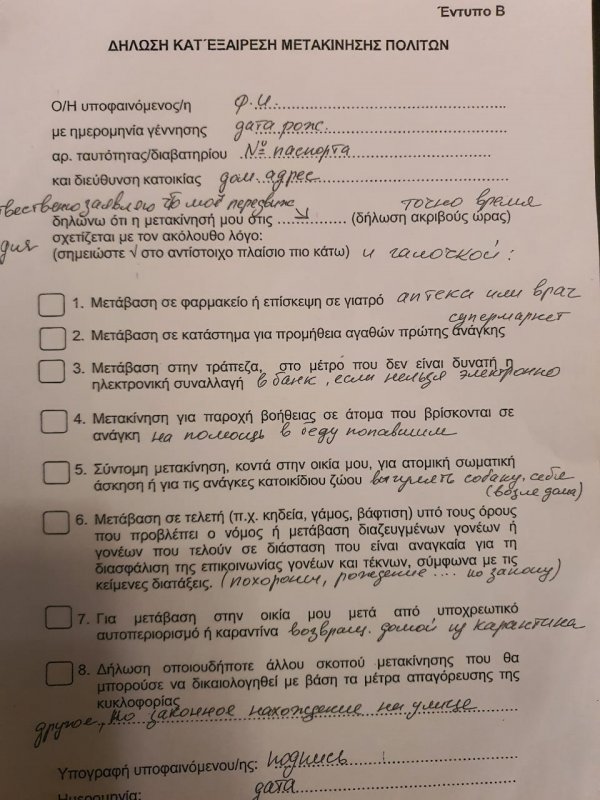 Έντυπο Β
ΔΗΛΩΣΗ ΚΑΤ΄ΕΞΑΙΡΕΣΗ ΜΕΤΑΚΙΝΗΣΗΣ ΠΟΛΙΤΩΝ
Ο/Η υποφαινόμενος/η Ф.И.
με ημερομηνία γέννησης дата рож.
αρ. ταυτότητας/διαβατηρίου № паспорта
και διεύθυνση κατοικίας дом. адрес
заявляю моё передвиж точно время
δηλώνω ότι η μετακίνησή μου στις ............ (δήλωση ακριβούς ώρας)
σχετίζεται με τον ακόλουθο λόγο:
(σημειώστε √ στο αντίστοιχο πλαίσιο πιο κάτω) и галочкой:
1. Μετάβαση σε φαρμακείο ή επίσκεψη σε γιατρό аптеки или врач
супермаркет
2. Μετάβαση σε κατάστημα για προμήθεια αγαθών πρώτης ανάγκης
3. Μετάβαση στην τράπεζα, στο μέτρο που δεν είναι δυνατή η
ηλεκτρονική συναλλαγή в банк, если нельзя электронно
4. Μετακίνηση για παροχή βοήθειας σε άτομα που βρίσκονται σε
ανάγκη на помощь в беду попавшим
5. Σύντομη μετακίνηση, κοντά στην οικία μου, για ατομική σωματική
άσκηση ή για τις ανάγκες κατοικίδιου ζώου выгулять собаку, себя
(возле дома)
6. Μετάβαση σε τελετή (π.χ. κηδεία, γάμος, βάφτιση) υπό τους όρους
που προβλέπει ο νόμος ή μετάβαση διαζευγμένων γονέων ή
γονέων που τελούν σε διάσταση που είναι αναγκαία για τη
διασφάλιση της επικοινωνίας γονέων και τέκνων, σύμφωνα με τις
κείμενες διατάξεις. (похороны, рождение .... по закону)
7. Για μετάβαση στην οικία μου μετά από υποχρεωτικό
αυτοπεριορισμό ή καραντίνα возвращ. домой из карантина
8. Δήλωση οποιουδήποτε άλλου σκοπού μετακίνησης που θα
μπορούσε να δικαιολογηθεί με βάση τα μέτρα απαγόρευσης της
κυκλοφορίας
другое, но законное нахождение на улице
Υπογραφή υποφαινόμενου/ης: подпись
Ημερομηνία: дата